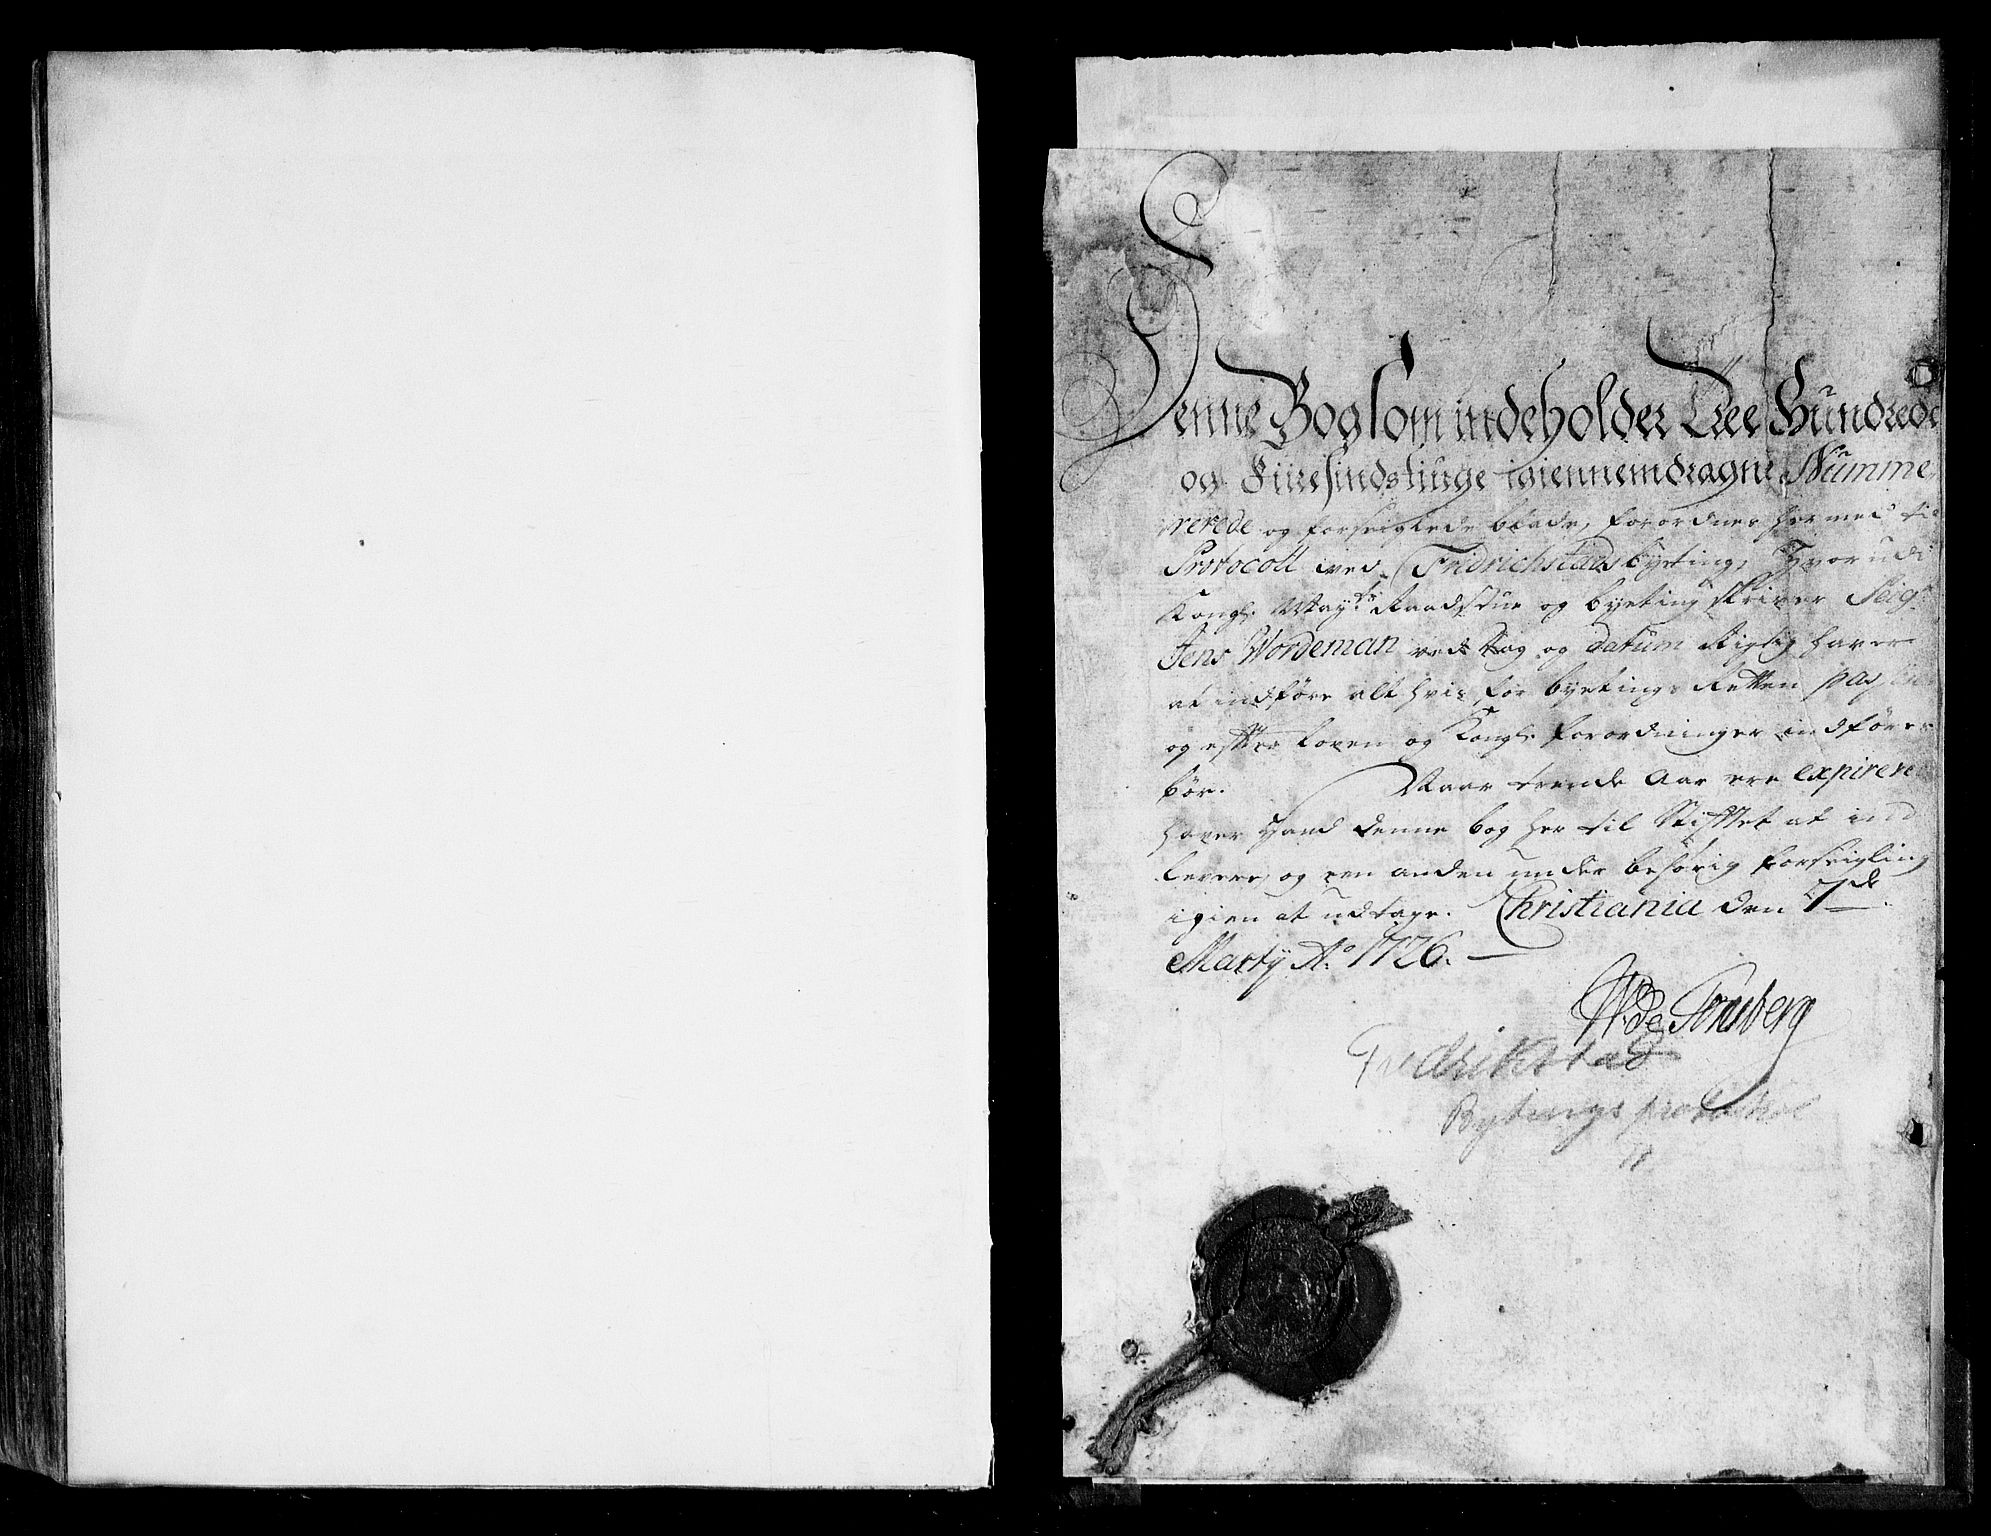 Denne Bog som indeholder Tree Hundrede
og Fiiresindstiuge igiennemdragne Numme
rerede og forseiglede blade, forordnes hermed til
Protocoll ved Fridrichstads byeting, Hvorudi
Kongl. May:ts Raadstue og byetingskriver Seig:r
Jens Wordeman ved dag og datum Rigtig haver
at indføre alt hvis for byetings Retten
og effter loven og Kongl. forordninger indføres
bør. Naar trende Aar ere expirerede
haver hand denne bog her til Stifftet at ind
levere, og een anden under behørig forseigling
igien at udtage. Christiania den 7de
Marty Ao 1726.
W. de Tonsberg
Fredrikstad
Bytingsprotokol